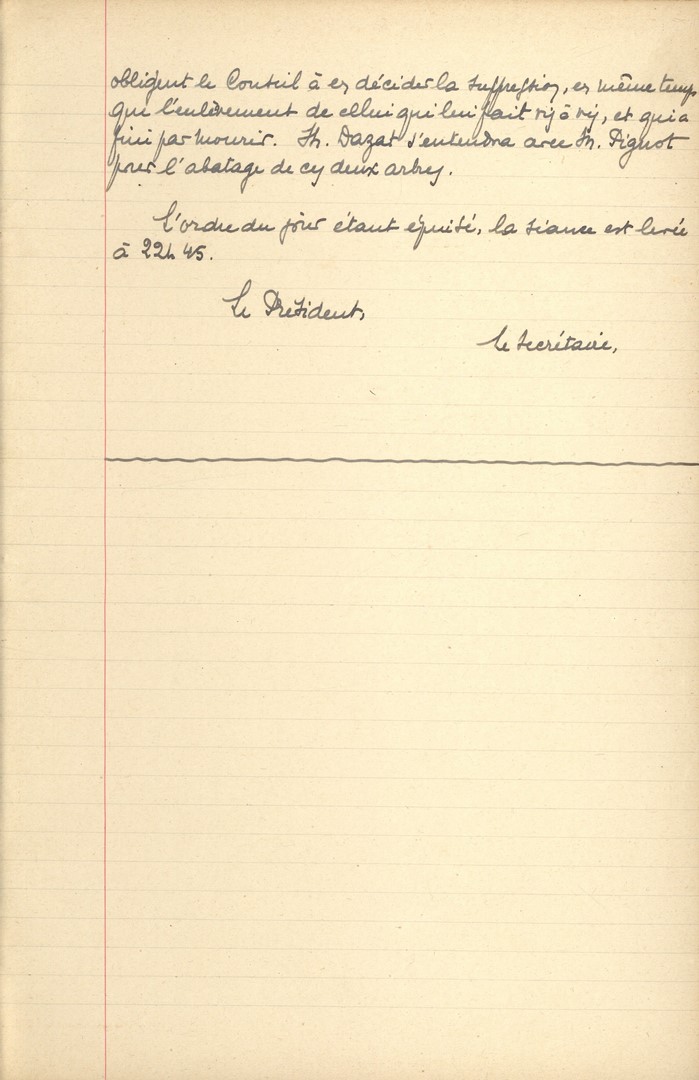 obligent le Conseil à en décider la suppression, en même temps
que l'enlèvement de celui qui lui fait vis à vis, et qui a
fini par mourir. M. Dazat s'entendra avec M. Pignot
pour l'abatage de ces deux arbres.
L'ordre du jour étant épuisé, la séance est levée
à 22h45.
Le Président,
Le Secrétaire,